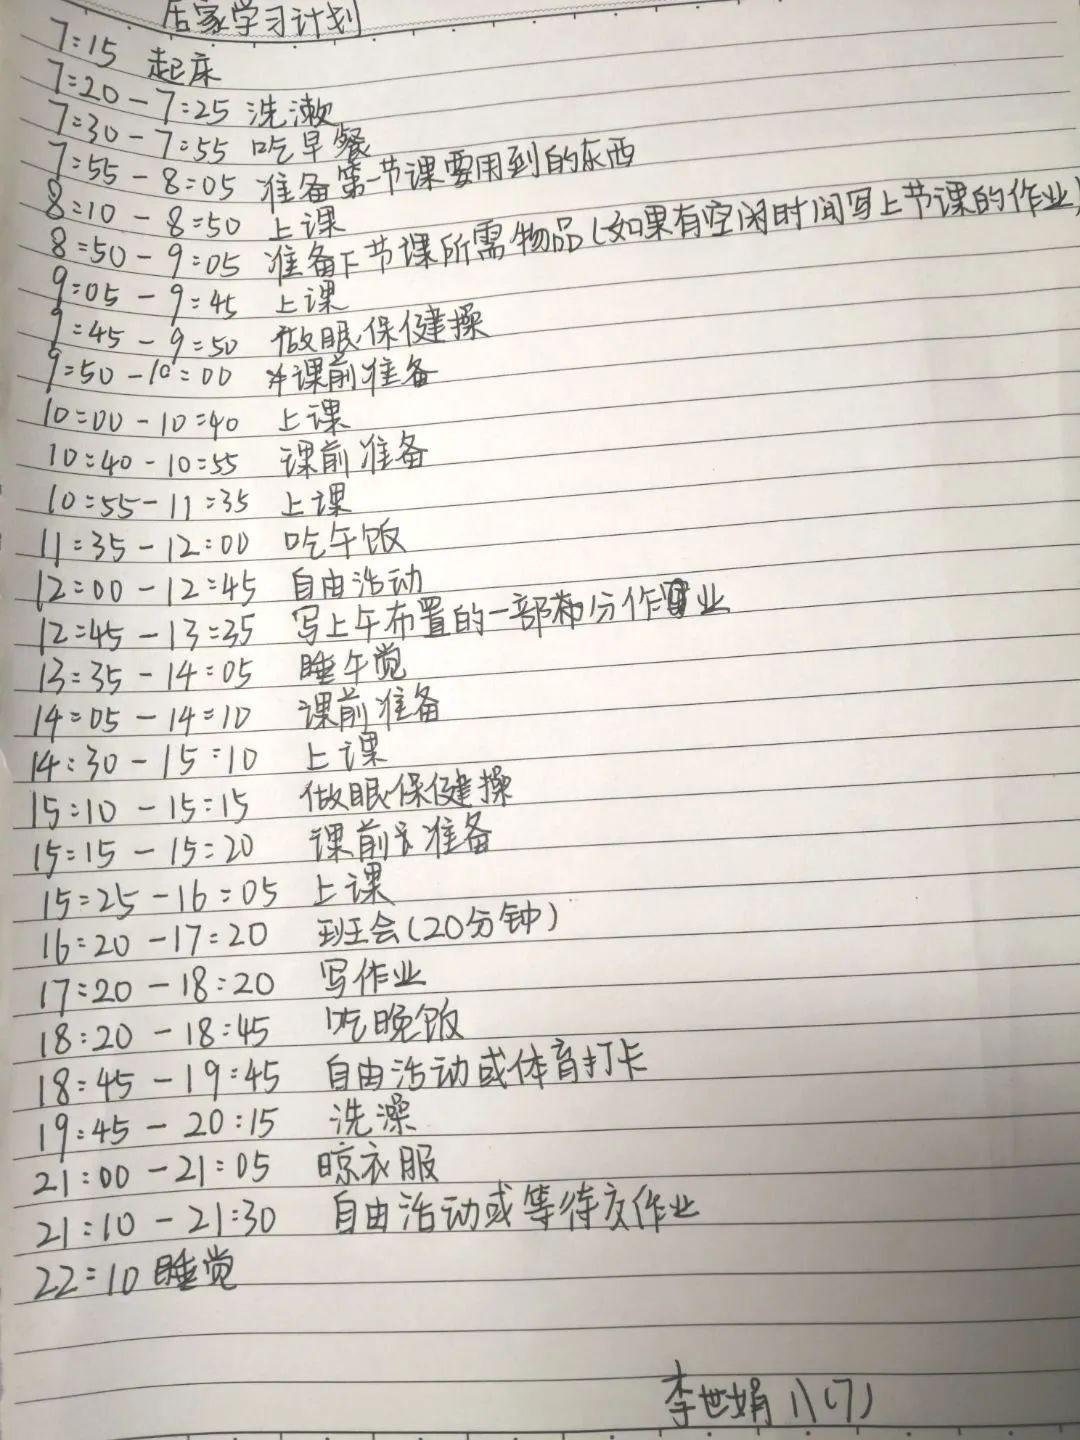 居家学习计划
7:15 起床
7:20-7:25 洗漱
7:30-7:55 吃早餐
7:55-8:05 准备第一节课要用到的东西
8:10-8:50 上课
8:50-9:05 准备下节课所需物品(如果有空闲时间写上节课的作业)
9:05-9:45 上课
9:45-9:50 做眼保健操
9:50-10:00 课前准备
10:00-10:40 上课
10:40-10:55 课前准备
10:55-11:35 上课
11:35-12:00 吃午饭
12:00-12:45 自由活动
12:45-13:35 写上午布置的一部分作业
13:35-14:05 睡午觉
14:05-14:10 课前准备
14:30-15:10 上课
15:10-15:15 做眼保健操
15:15-15:20 课前准备
15:25-16:05 上课
16:20-17:20 班会(20分钟)
17:20-18:20 写作业
18:20-18:45 吃晚饭
18:45-19:45 自由活动或体育打卡
19:45-20:15 洗澡
21:00-21:05 晾衣服
21:10-21:30 自由活动或等待交作业
22:10 睡觉
李世娟 八(7)